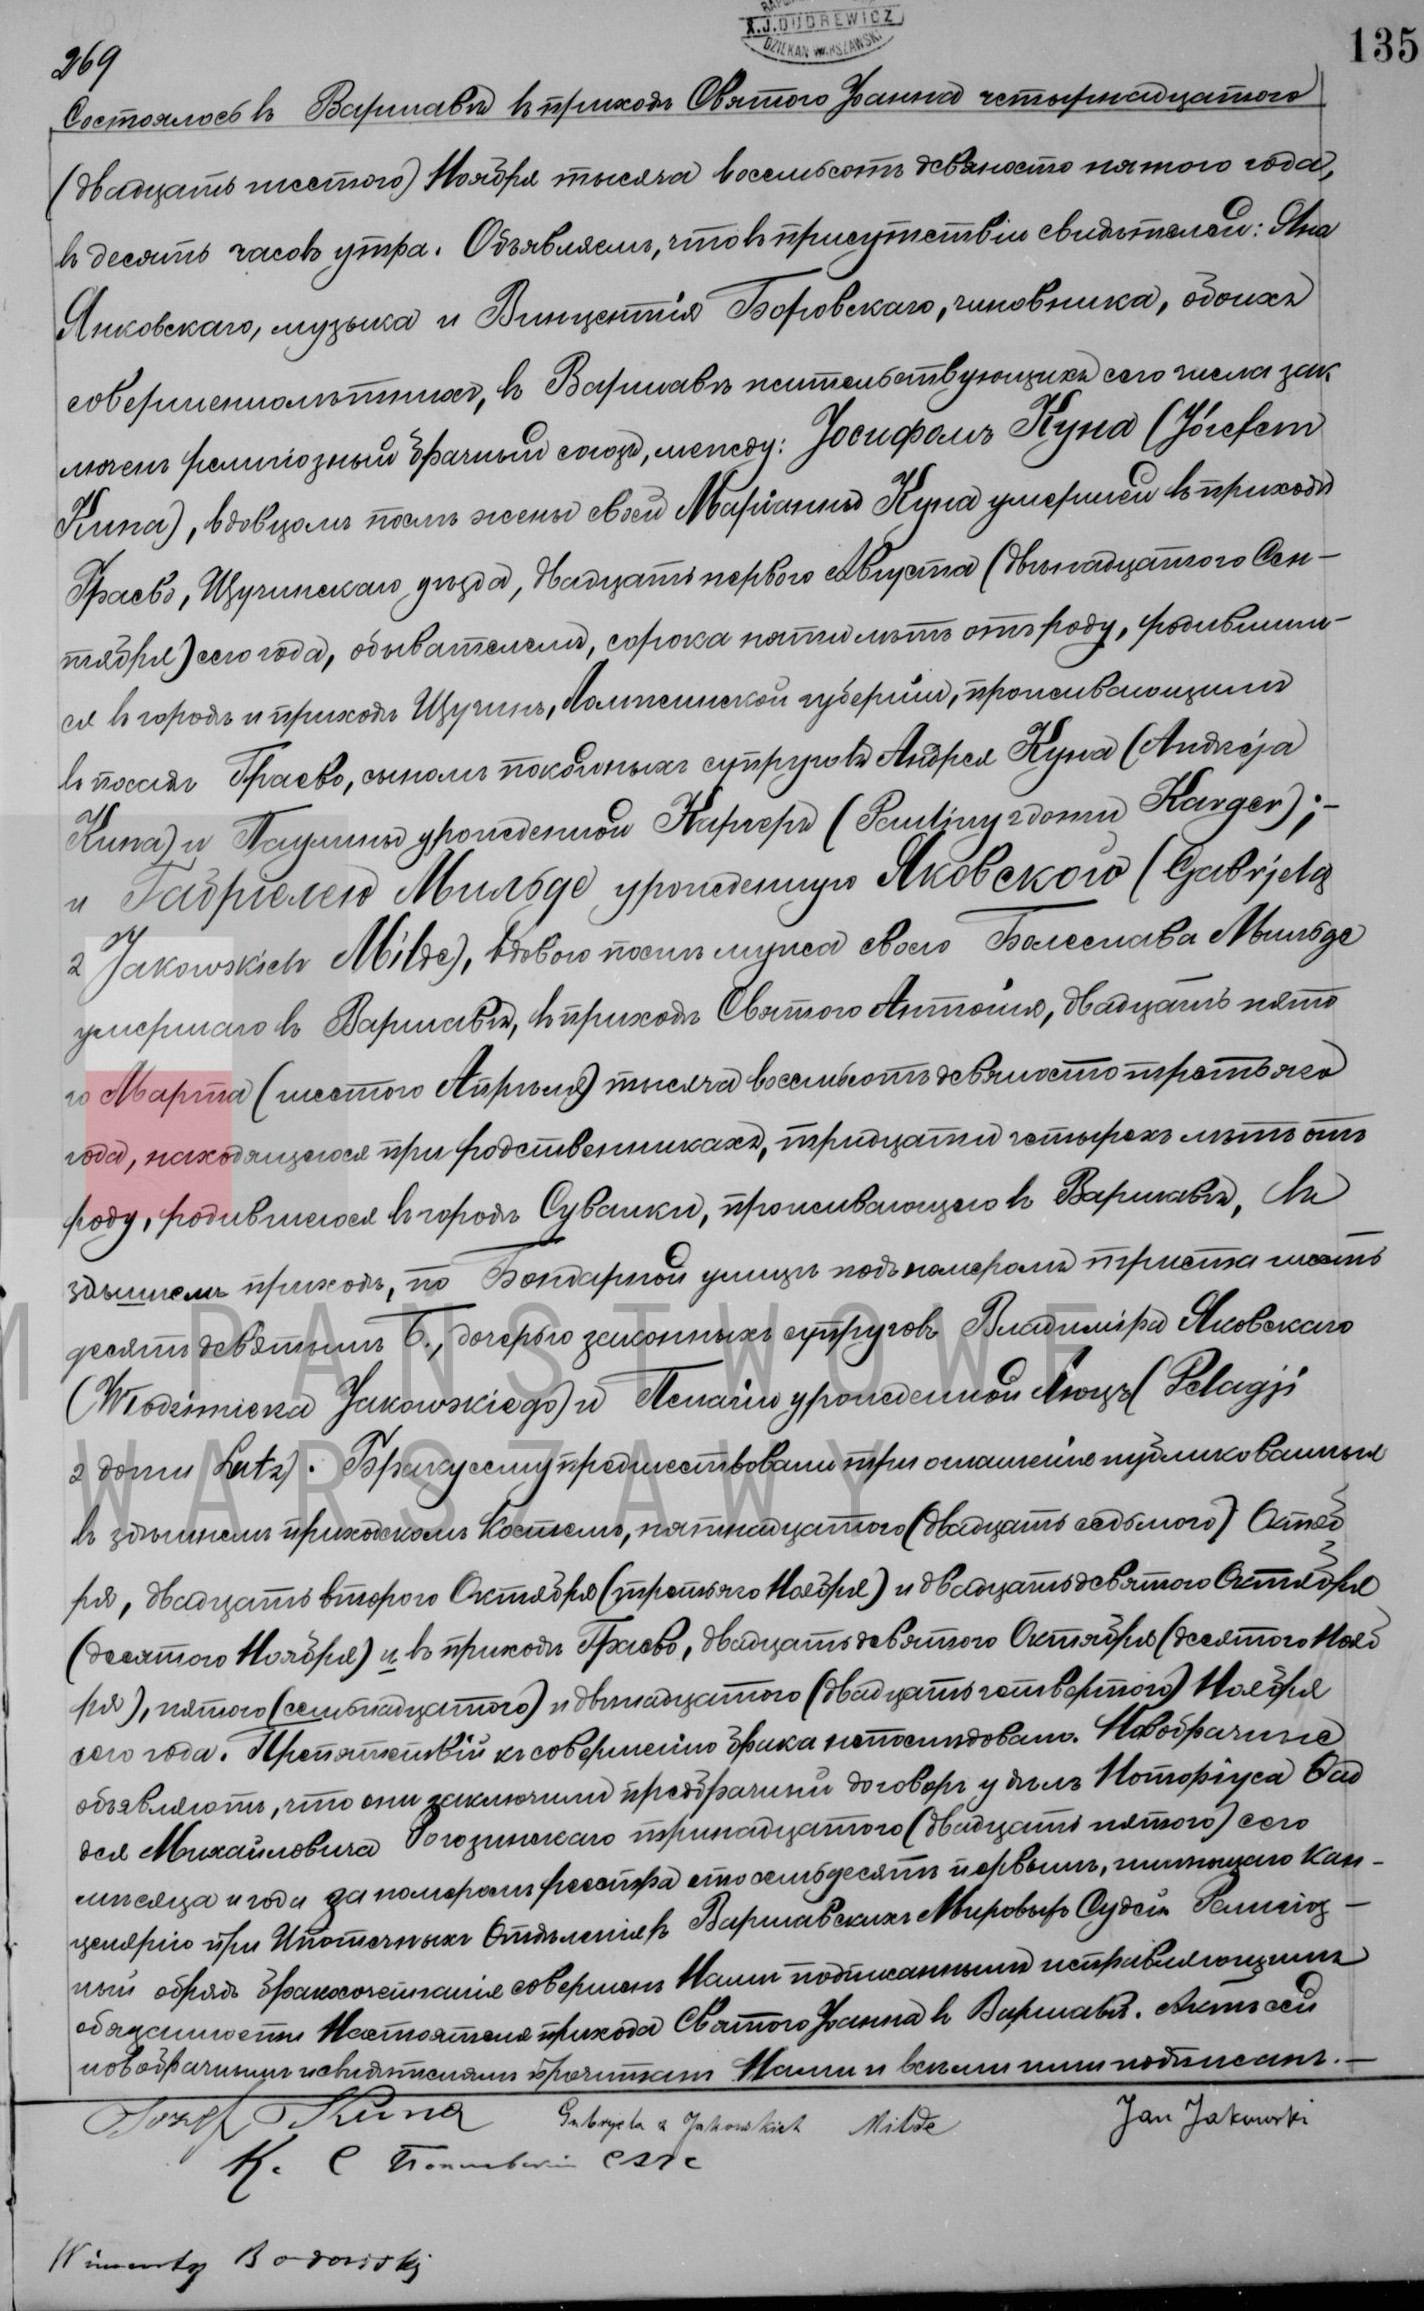 X.J.DUDREWICZ
DZIEKAN WARSZAWSKI
135
269
Состоялось въ Варшавѣ въ приходѣ Святого Іоанна четырнадцатого
(двадцать шестого) Ноября тысяча восемьсотъ девяносто пятого года,
въ десять часовъ утра. Объявляемъ, что въ присутствіи свидѣтелей: Яна
Янковскаго, музыка и Винцентія Боровскаго, чиновника, обоихъ
совершеннолѣтнихъ, въ Варшавѣ жительствующихъ сего числа зак
люченъ религіозный брачный союзъ, между: Іосифомъ Куна (Józefem
Kuna), вдовцомъ послѣ жены своей Маріанны Куна умершей въ приходѣ
Граево, Щучинскаго уѣзда, двадцать первого Августа (двѣнадцатого Сен-
тября) сего года, обывателемъ, сорока пяти лѣтъ отъ роду, родившим-
ся въ городѣ и приходѣ Щучинъ, Ломжинской губерніи, проживающимъ
въ посадѣ Граево, сыномъ покойныхъ супруговъ Андрея Куна (Andrzeja
Kuna) и Паулины урожденной Каргеръ (Pauliny z domu Karger);-
и Габріелею Мильде урожденную Яковскою (Gabrjelą
z Jakowskich Milde), вдовою послѣ мужа своего Болеслава Мильде
умершаго въ Варшавѣ, въ приходѣ Святого Антонія, двадцать пято
го Марта (шестого Апрѣля) тысяча восемьсотъ девяносто третьяго
года, находящеюся при родственникахъ, тридцати четырехъ лѣтъ отъ
роду, родившеюся въ городѣ Сувалки, проживающею въ Варшавѣ, въ
здѣшнемъ приходѣ, по Бондарной улицѣ подъ номеромъ триста шесть
десятъ девятымъ Б., дочерью законныхъ супруговъ Владиміра Яковскаго
(Włodzimierza Jakowskiego) и Пелагіи урожденной Люцъ (Pelagji
z domu Lutz). Браку сему предшествовали три оглашенія публикованныя
въ здѣшнемъ приходскомъ костелѣ, пятнадцатого (двадцать седьмого) Октяб
ря, двадцать второго Октября (третьяго Ноября) и двадцать девятого Октября
(десятого Ноября) и въ приходѣ Граево, двадцать девятого Октября (десятого Нояб
ря), пятого (семнадцатого) и двѣнадцатого (двадцать четвертого) Ноября
сего года. Препятствій къ совершенію брака не послѣдовало. Новобрачные
объявляютъ, что они заключили предбрачный договоръ у дѣлъ Нотаріуса
Михайловича Рогозинскаго тринадцатого (двадцать пятого) сего
мѣсяца и года за номеромъ реестра сто семьдесятъ первымъ, имѣющаго Кан-
целярію при Ипотечныхъ Отдѣленіяхъ Варшавскихъ Мировыхъ Судей Религіоз-
ный обрядъ бракосочетанія совершенъ Нами нижеподписаннымъ исправляющимъ
обязанности Настоятеля прихода Святого Іоанна въ Варшавѣ. Актъ сей
новобрачнымъ и свидѣтелямъ прочитанъ Нами и всѣми ими подписанъ.-
Józef Kuna Gabryela z Jakowskich Milde Jan Jakowski
К. С
Wincenty Borowski
M PAŃSTWOWE
WARSZAWY